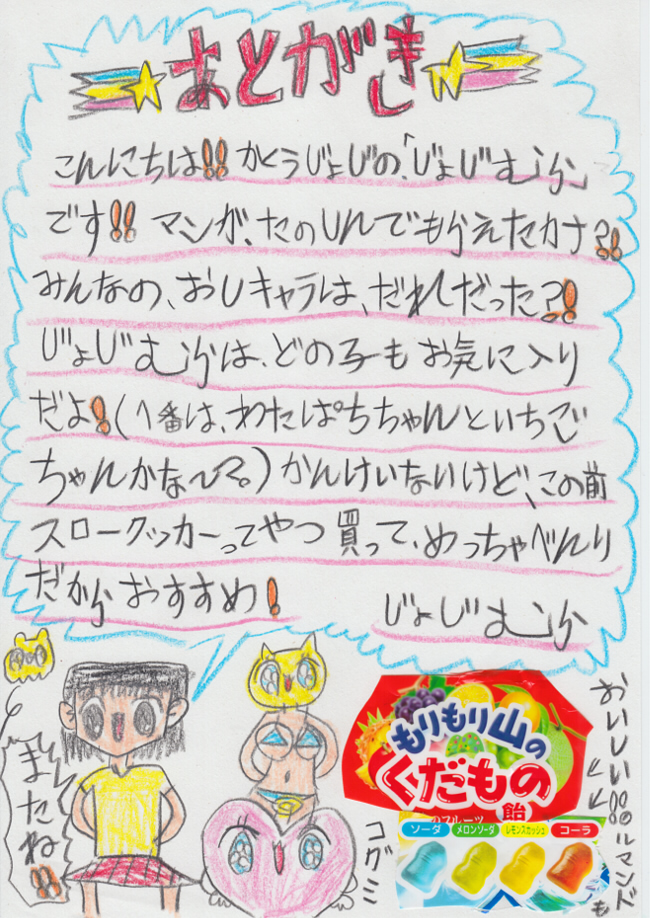 あとがき
こんにちは!! かとうじょじの、「じょじむら」
です!! マンガ、たのしんでもらえたカナ?!
みんなの、おしキャラは、だれだった?!
じょじむらは、どの子もお気に入り
だよ!(1番は、わたぱちちゃんといちご
ちゃんかな〜?。)かんけいないけど、この前
スロークッカーってやつ買って、めっちゃべんり
だからおすすめ!
じょじむら
またね!!
コグミ
もりもり山の
くだもの
飴
のフルーツ
ソーダ メロンソーダ レモンスカッシュ コーラ
おいしい!!
ルマンド
も